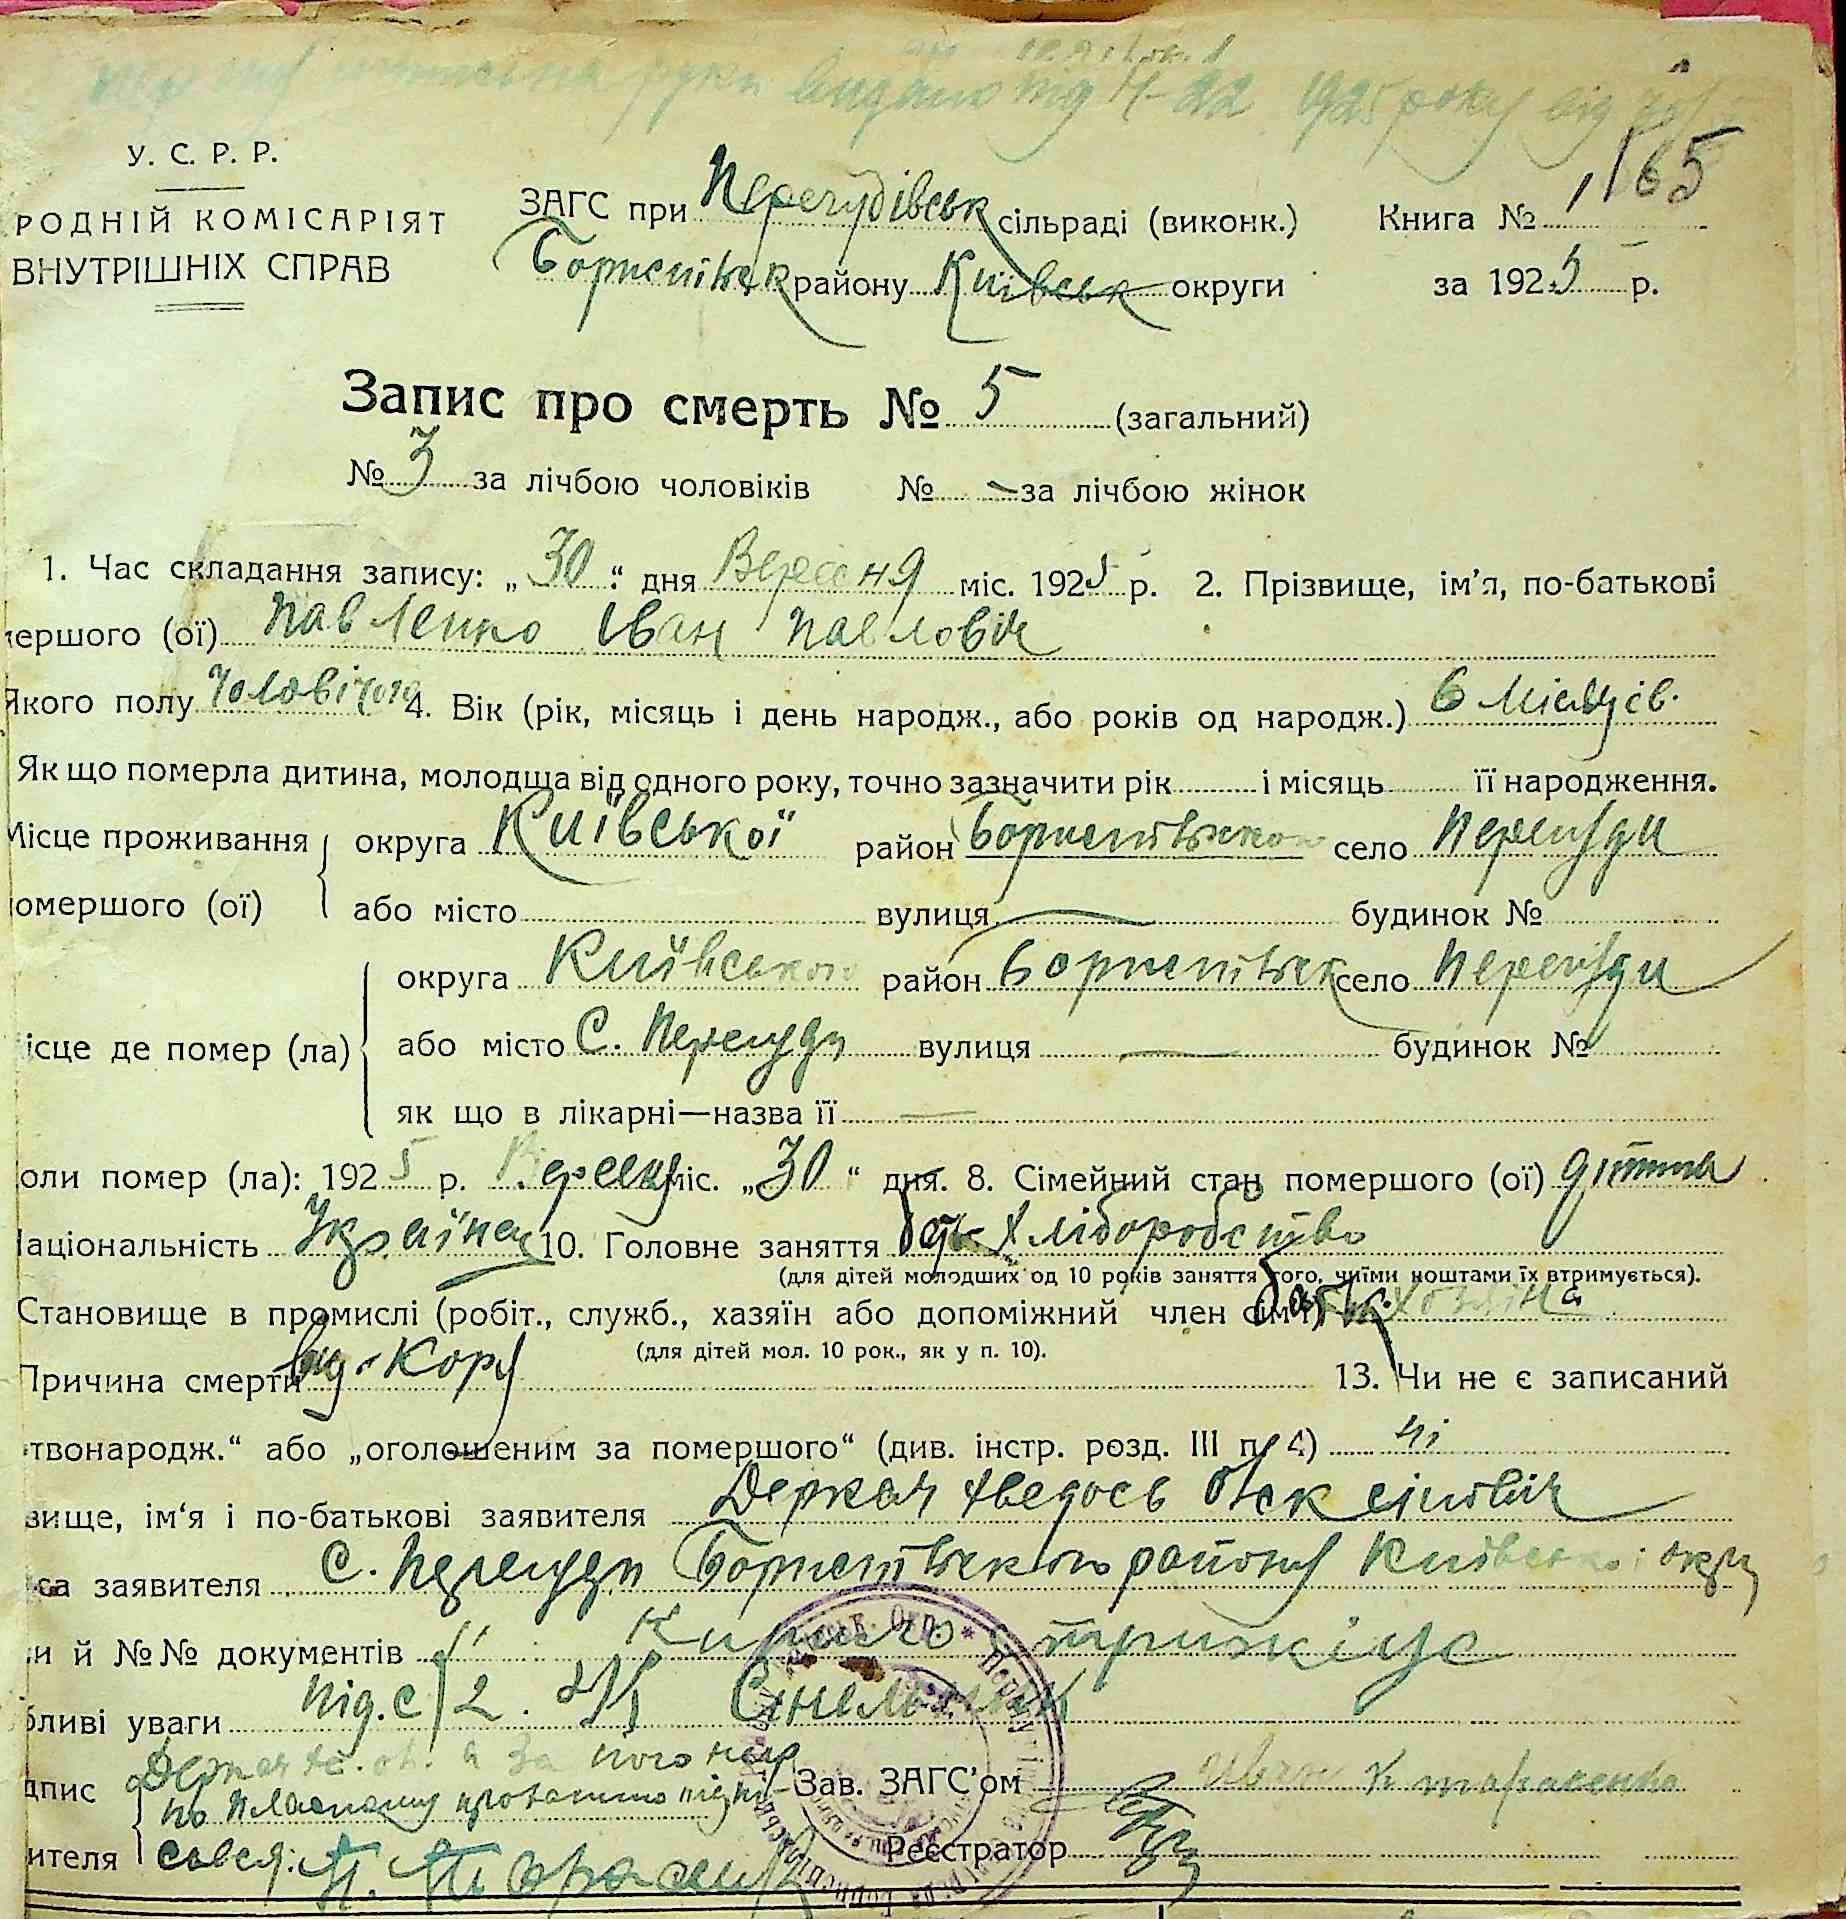 руки видано під Ч-22 1925 року від
У. С. Р. Р.
РОДНІЙ КОМІСАРІЯТ
ВНУТРІШНІХ СПРАВ
ЗАГС при Перегудівськ сільраді (виконк.)
Бориспільськ району Київськ округи
Книга № 165
за 1925 р.
Запис про смерть № 5 (загальний)
№ 3 за лічбою чоловіків № – за лічбою жінок
1. Час складання запису: „30“ дня Вересня міс. 1925 р. 2. Прізвище, ім'я, по-батькові
мершого (ої) Павленко Іван Павловіч
Якого полу Чоловічого 4. Вік (рік, місяць і день народж., або років од народж.) 6 Місяців.
Як що померла дитина, молодща від одного року, точно зазначити рік і місяць її народження.
Місце проживання округа Київської район Бориспільском село Перегуди
омершого (ої) або місто вулиця — будинок №
округа Київського район Бориспільск село Перегуди
ісце де помер (ла) або місто С. Перегуди вулиця — будинок №
як що в лікарні—назва її —
оли помер (ла): 1925 р. Вересня міс. „30“ дня. 8. Сімейний стан помершого (ої) дитина
аціональність Українец 10. Головне заняття Хліборобство
(для дітей молодших од 10 років заняття того, чиїми коштами їх втримується).
Становище в промислі (робіт., служб., хазяїн або допоміжний член сім'ї) батьк. хозяїна
(для дітей мол. 10 рок., як у п. 10).
Причина смерти від Кору 13. Чи не є записаний
твонародж.“ або „оголошеним за помершого“ (див. інстр. розд. III п. 4) ні
вище, ім'я і по-батькові заявителя Деркач Хведось
са заявителя С. Перегуди Бориспільского району Київської окру
и й №№ документів
бливі уваги
дпис Зав. ЗАГС'ом Иван
ителя Реєстратор